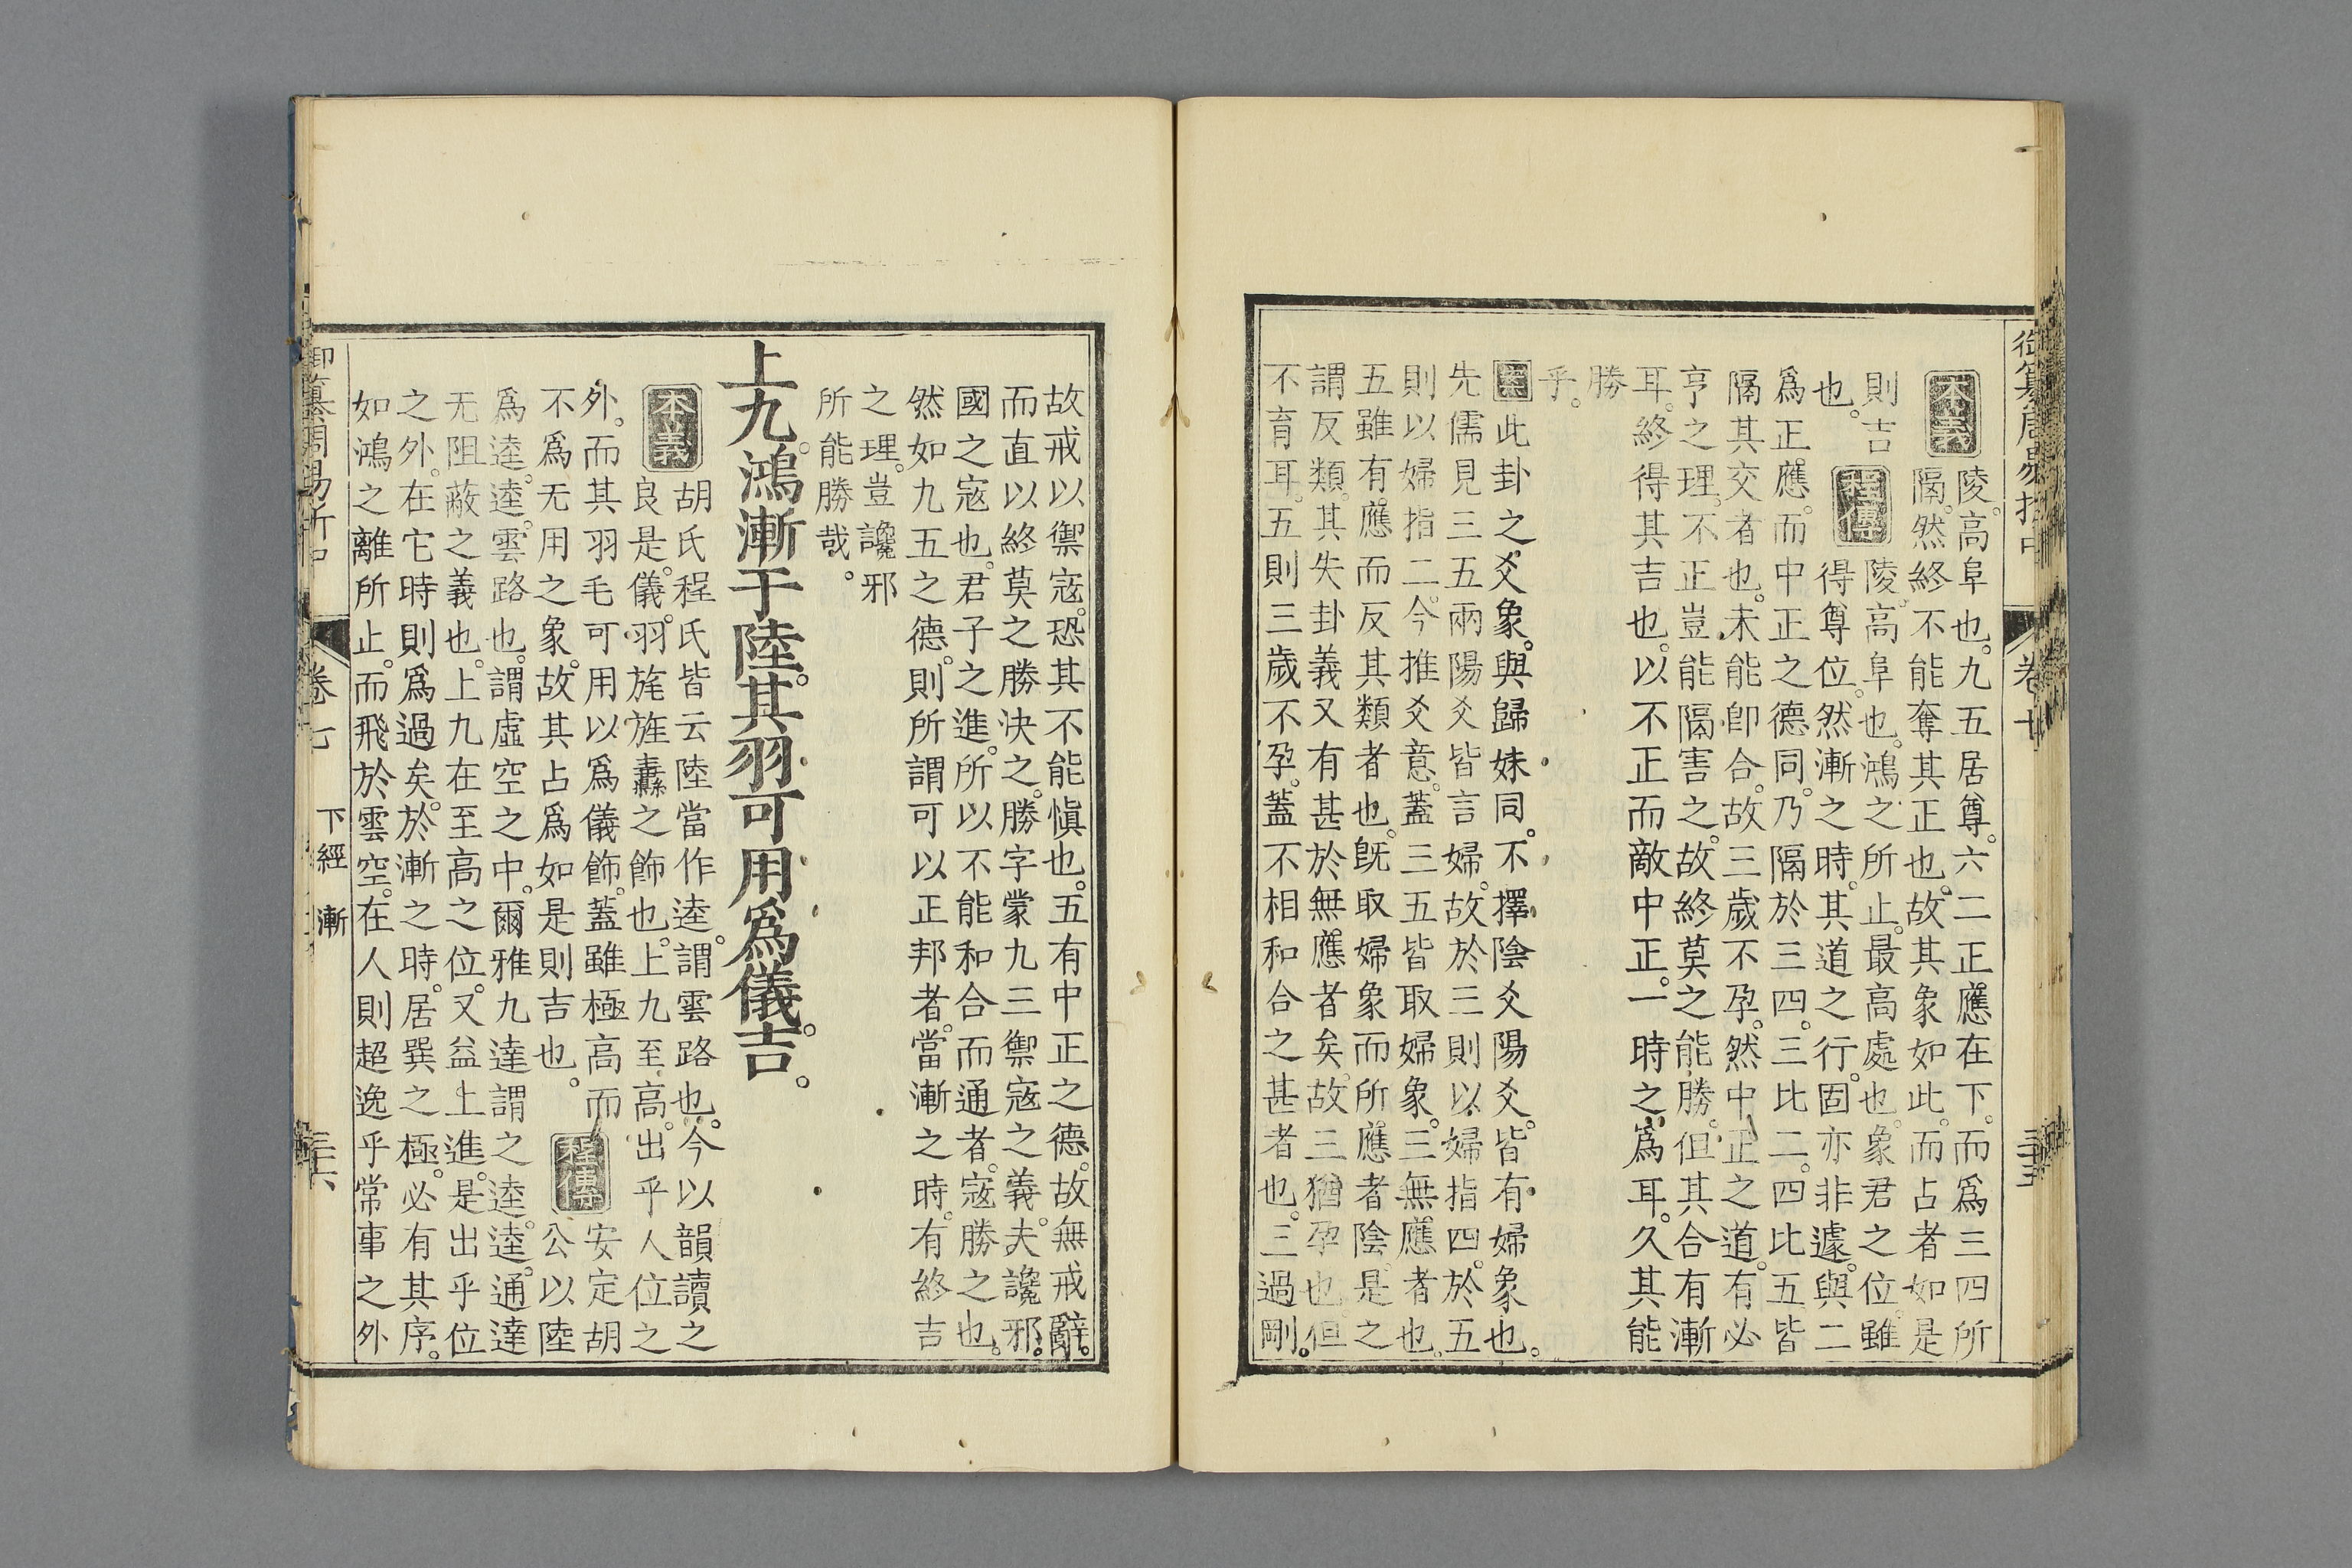 御纂周易折中 卷七 三十五
本義
陵。高阜也。九五居尊。六二正應在下。而爲三四所
隔。然終不能奪其正也。故其象如此。而占者如是
則吉
也。
程傳
陵。高阜也。鴻之所止。最高處也。象君之位。雖
得尊位。然漸之時。其道之行。固亦非遽。與二
爲正應。而中正之德同。乃隔於三四。三比二。四比五。皆
隔其交者也。未能卽合。故三歲不孕。然中正之道。有必
亨之理。不正豈能隔害之。故終莫之能勝。但其合有漸
耳。終得其吉也。以不正而敵中正。一時之爲耳。久其能
勝
乎。
案此卦之爻象。與歸妹同。不擇陰爻陽爻。皆有婦象也。
先儒見三五兩陽爻皆言婦。故於三則以婦指四。於五
則以婦指二。今推爻意。蓋三五皆取婦象。三無應者也。
五雖有應。而反其類者也。旣取婦象而所應者陰。是之
謂反類。其失卦義又有甚於無應者矣。故三猶孕也。但
不育耳。五則三歲不孕。蓋不相和合之甚者也。三過剛。
故戒以禦寇。恐其不能愼也。五有中正之德。故無戒辭。
而直以終莫之勝決之。勝字蒙九三禦寇之義。夫讒邪。
國之寇也。君子之進。所以不能和合而通者。寇勝之也。
然如九五之德。則所謂可以正邦者。當漸之時。有終吉
之理。豈讒邪
所能勝哉。
上九。鴻漸于陸。其羽可用爲儀。吉。
本義
胡氏程氏皆云陸當作逵。謂雲路也。今以韻讀之
良是。儀。羽旄旌纛之飾也。上九至高。出乎人位之
外。而其羽毛可用以爲儀飾。蓋雖極高而
不爲无用之象。故其占爲如是則吉也。
程傳
安定胡
公以陸
爲逵。逵。雲路也。謂虛空之中。爾雅九達謂之逵。逵。通達
无阻蔽之義也。上九在至高之位。又益上進。是出乎位
之外。在它時則爲過矣。於漸之時。居巽之極。必有其序。
如鴻之離所止。而飛於雲空。在人則超逸乎常事之外
御纂周易折中 卷七 下經 漸 三十六